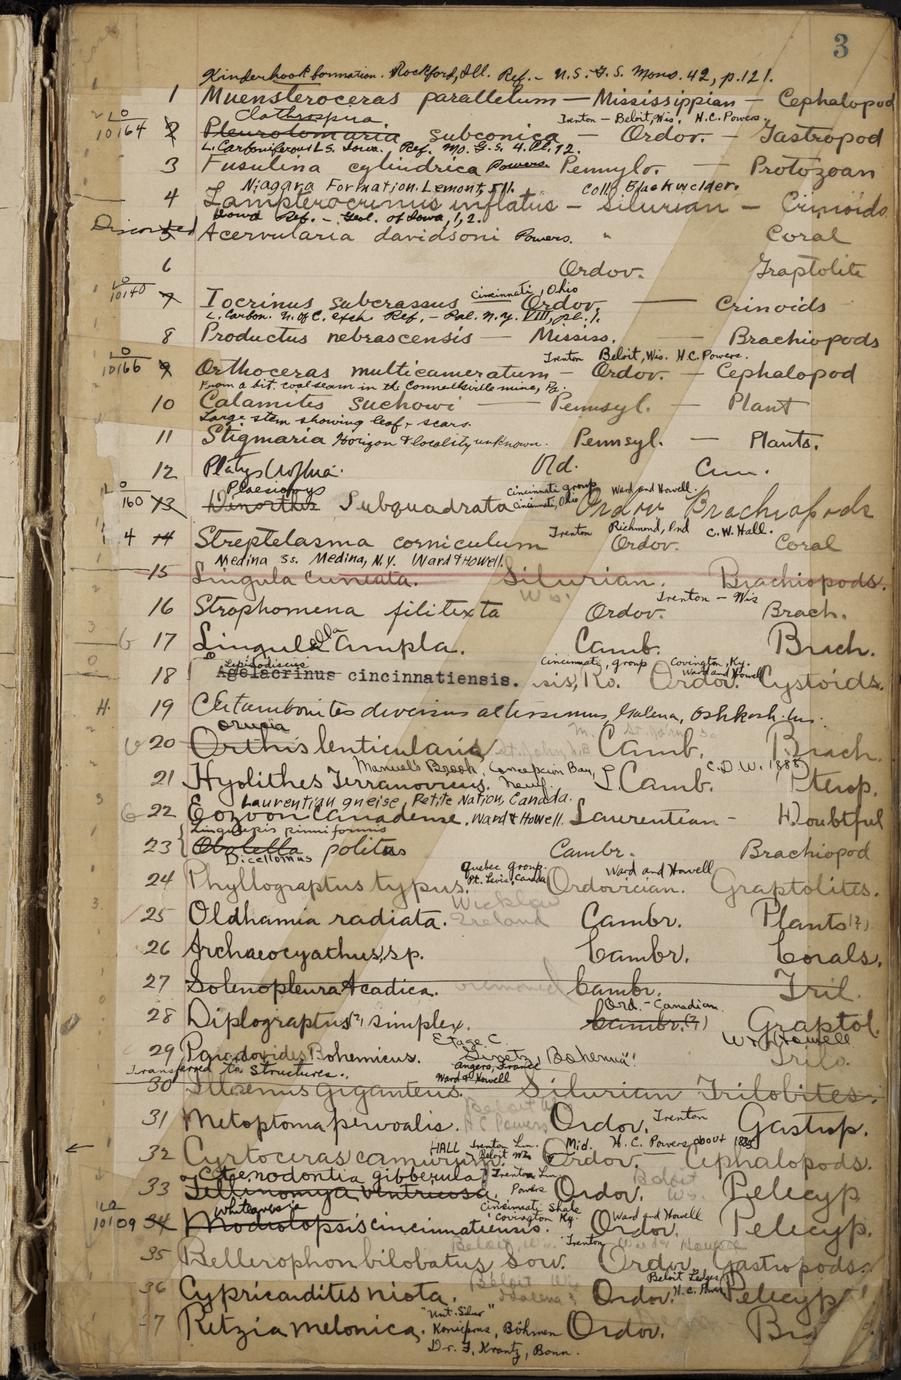 3
Kinderhook formation. Rockford, Ill. Ref. - U.S.G.S. Mono. 42, p. 121.
1 Muensteroceras parallelum — Mississippian — Cephalopod
Clathrospira. Trenton - Beloit, Wis. H.C. Powers.
10164 2 Pleurotomaria subconica — Ordov. — Gastropod
L. Carboniferous LS. Iowa. Ref. Mo. G.S. 4. Pl. 12.
3 Fusulina cylindrica Powers. Pennylv. — Protozoan
Niagara Formation. Lemont, Ill. Coll. Blackwelder.
4 Lampterocrinus inflatus — Silurian — Crinoids
Iowa Ref. - Geol. of Iowa, 1, 2.
Discarded 5 Acervularia davidsoni Powers. " Coral
6 Ordov. Graptolite
10140 7 Iocrinus subcrassus Cincinnati, Ohio Ordov. — Crinoids
L. Carbon. Ref. - Pal. N.Y. VIII, pl. 1.
8 Productus nebrascensis — Mississ. — Brachiopods
Trenton Beloit, Wis. H.C. Powers.
10166 9 Orthoceras multicameratum — Ordov. — Cephalopod
From a bit. coal seam in the Connellsville mine, Pa.
10 Calamites Suckowi — Pennsyl. — Plant
Large stem showing leaf-scars.
11 Stigmaria Horizon & locality unknown. Pennsyl. — Plants.
12 Old.
Plaesiomys Cincinnati group Ward and Howell.
160 13 Dinorthis Subquadrata Cincinnati, Ohio Ordov Brachiopods
4 14 Streptelasma corniculum Trenton Ordov. Richmond, Ind C.W. Hall. Coral
Medina Ss. Medina, N.Y. Ward & Howell.
15 Lingula cuneata. Silurian. Brachiopods.
Wis. Trenton - Wis
16 Strophomena filitexta Ordov. Brach.
6 17 Lingulella Ampla. Camb. Brach.
Lepidodiscus Cincinnati, group Covington, Ky. Ward and Howell
18 Agelacrinus cincinnatiensis. Ordov. Cystoids.
19 Clitambonites diversus altissimus, Galena, Oshkosh.
orusia
6 20 Orthis lenticularis Camb. Brach.
Manuels Brook, Conception Bay, Newf. C.D.W. 1888
21 Hyolithes Terranovicus. L Camb. Pterop.
Laurentian gneiss, Petite Nation, Canada.
6 22 Eozoon Canadense. Ward & Howell. Laurentian - Doubtful
Lingulepis pinniformis
23 Obolella politus Cambr. Brachiopod
Dicellomus
Quebec group. Pt. Levis, Canada Ward and Howell
24 Phyllograptus typus. Ordovician. Graptolites.
Wicklow
25 Oldhamia radiata. Ireland Cambr. Plants (?)
26 Archaeocyathus, sp. Cambr. Corals.
27 Solenopleura Acadica. removed Cambr. Tril.
Ord. - Canadian
28 Diplograptus (?) simplex. Cambr. (?) Graptol.
Etage C W. & Howell
29 Paradoxides Bohemicus. Bohemia Trilo.
Transferred to Structures. Angers, France
Ward & Howell
30 Illaenus giganteus. Silurian Trilobites.
Beloit
H.C. Powers
31 Metoptoma pervoalis. Ordov. Trenton Gastrop.
HALL Trenton Lim. Beloit Wis Mid. H.C. Powers, about 1880
32 Cyrtoceras camurum. Ordov. Cephalopods.
Ctenodontia gibberula Trenton L. Beloit Ws.
33 Tellinomya ventricosa. Powers Ordov. Pelecyp
Whiteavesia Cincinnati Shale Ward and Howell
10109 34 Modiolopsis cincinnatiensis. Covington Ky. Ordov. Pelecyp.
Trenton
35 Bellerophon bilobatus Sow. Ordov. Gastropods.
Beloit Wis Beloit Ledges H.C. Powers
36 Cypricardites niota. Galena Ordov. Pelecyp
"Unt-Silur"
37 Retzia melonica. Koniepras, Böhmen Ordov.
Dr. F. Krantz, Bonn.